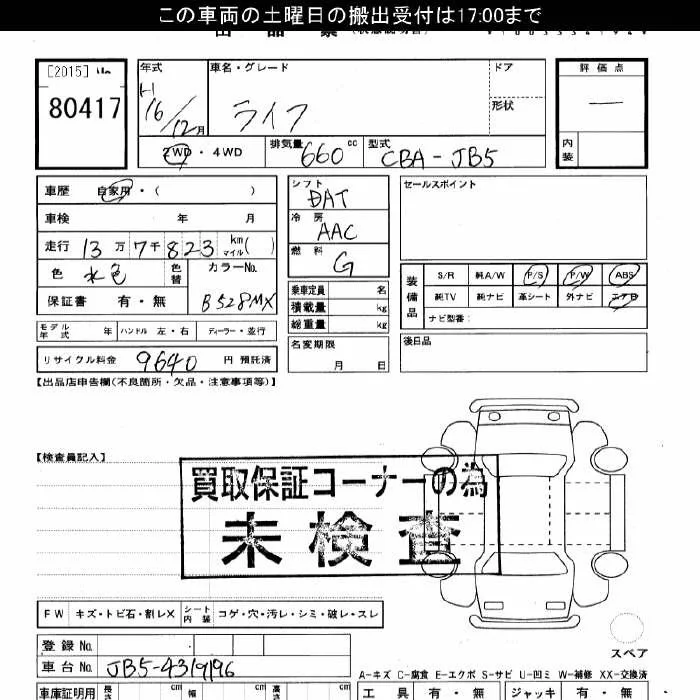 この車両の土曜日の搬出受付は17:00まで
[2015] No
80417
年式 車名・グレード ドア 評価点
H
16/12月 ライフ 形状 —
2WD・4WD 排気量 660 cc 型式 CBA-JB5 内装
車歴 自家用・( ) シフト DAT セールスポイント
車検 年 月 冷房 AAC
走行 13万7千823 km マイル( ) 燃料 G
色 水色 色替 カラーNo. B528MX
保証書 有・無
乗車定員 名
積載量 kg
総重量 kg
装備品 S/R 純A/W P/S P/W ABS
純TV 純ナビ 革シート 外ナビ エアB
ナビ型番:
モデル年式 年 ハンドル 左・右 ディーラー・並行
名変期限 月 日 後日品
リサイクル料金 9640 円 預託済
【出品店申告欄(不良箇所・欠品・注意事項等)】
【検査員記入】
買取保証コーナーの為
未検査
FW キズ・トビ石・割レX シート内装 コゲ・穴・汚レ・シミ・破レ・スレ
スペア
登録No.
車台No. JB5-4319196
A-キズ C-腐食 E-エクボ S-サビ U-凹ミ W-補修 XX-交換済
車庫証明用 長さ cm 幅 cm 高さ cm 工具 有・無 ジャッキ 有・無